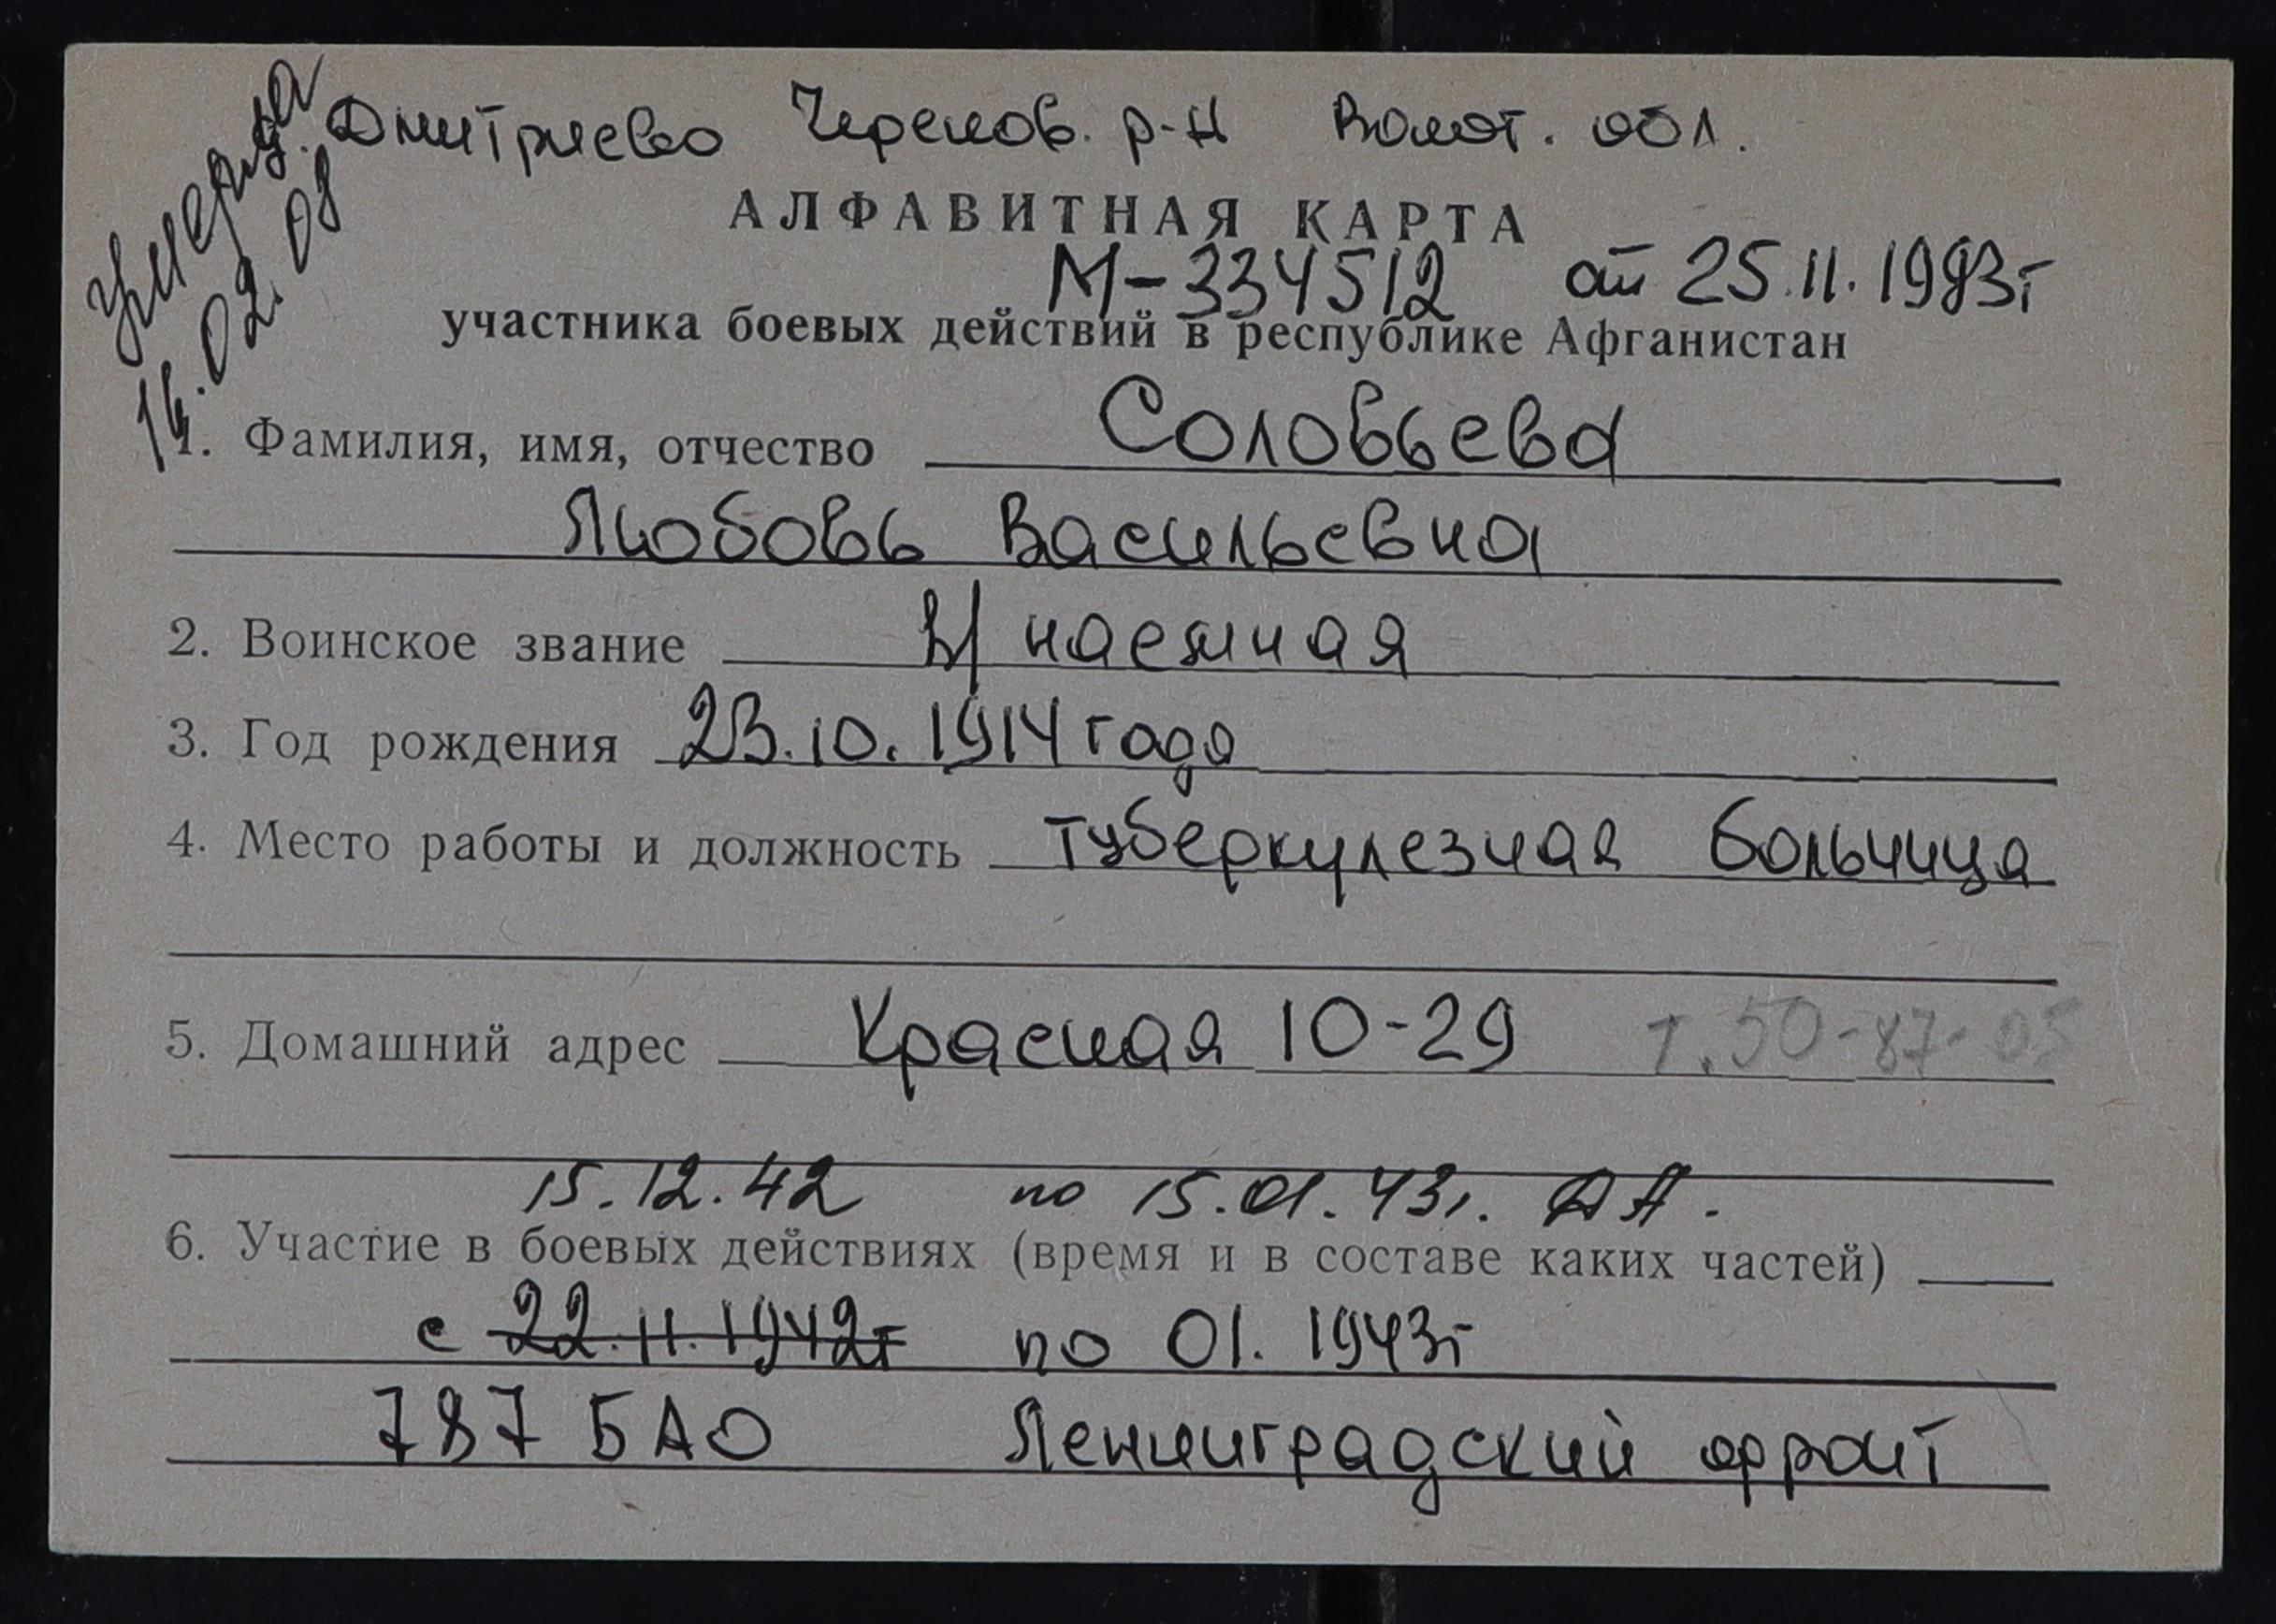 умерла
14.02.08
д. Дмитриево Черепов. р-н Волог. обл.
АЛФАВИТНАЯ КАРТА
М-334512 от 25.11.1993г
участника боевых действий в республике Афганистан
1. Фамилия, имя, отчество Соловьева
Любовь Васильевна
2. Воинское звание в/наемная
3. Год рождения 23.10.1914 года
4. Место работы и должность туберкулезная больница
5. Домашний адрес Красная 10-29 т. 50-87-05
15.12.42 по 15.01.43г. ДА.
6. Участие в боевых действиях (время и в составе каких частей)
с 22.11.1942г по 01.1943г
787 БАО Ленинградский фронт